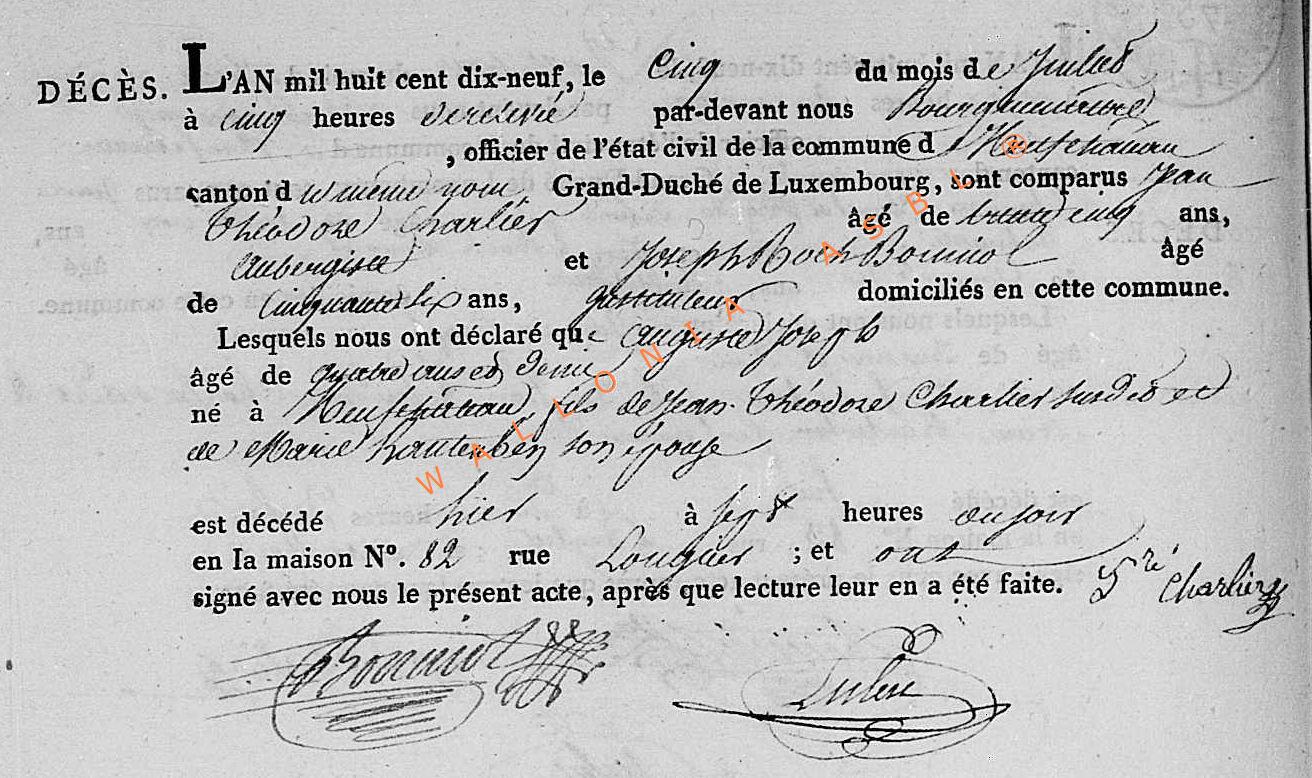 DÉCÈS. L'AN mil huit cent dix-neuf, le Cinq du mois de Juillet
à cinq heures de relevé par-devant nous Bourguemaitre
, officier de l'état civil de la commune d Neufchateau
canton d u meme nom Grand-Duché de Luxembourg, sont comparus Jean
Théodore Charlier âgé de trente cinq ans,
Aubergiste et Joseph Roch Bominol âgé
de Cinquante six ans, Instituteur domiciliés en cette commune.
Lesquels nous ont déclaré que Auguste Joseph
âgé de quatre ans et demi
né à Neufchateau, fils de Jean Théodore Charlier susdit et
de Marie son épouse
est décédé hier à sept heures du soir
en la maison N°. 82 rue ; et ont
signé avec nous le présent acte, après que lecture leur en a été faite. Charlier
WALLONIA ASBL ®